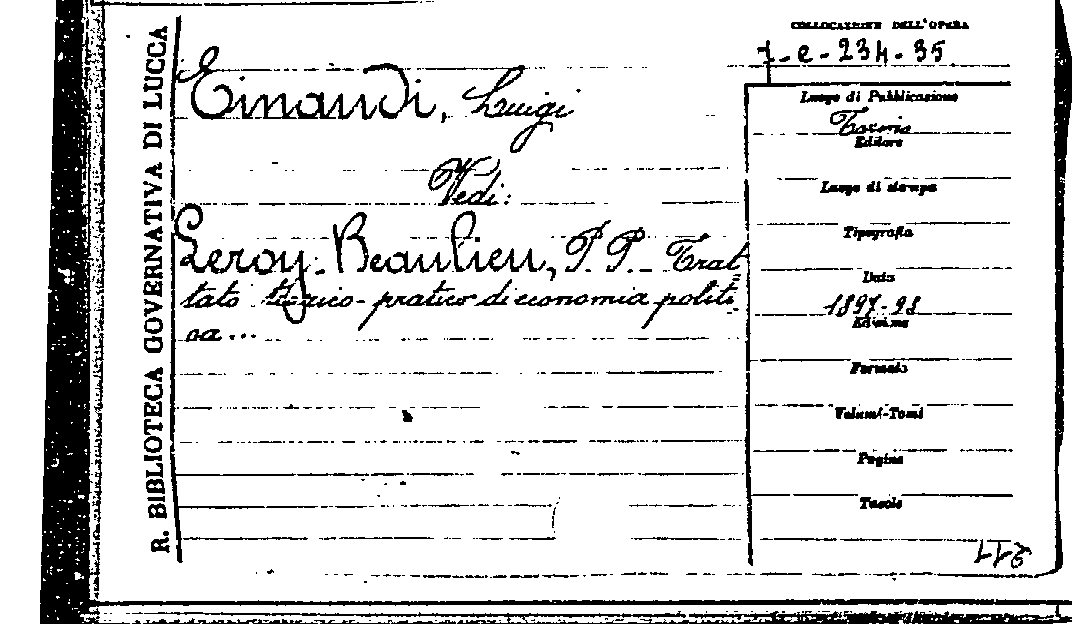 R. BIBLIOTECA GOVERNATIVA DI LUCCA
COLLOCAZIONE DELL'OPERA
7-e-234-35
Einaudi, Luigi
Vedi:
Leroy-Beaulieu, P. P. - Trat
tato teorico-pratico di economia politi
ca...
Luogo di Pubblicazione
Torino
Editore
Luogo di stampa
Tipografia
Data
1897-98
Edizione
Formato
Volumi-Tomi
Pagine
Tavole